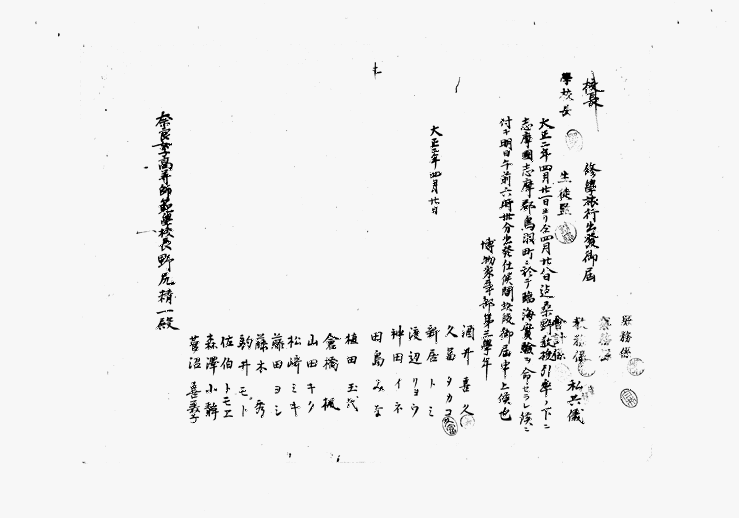 校長
學校長
生徒監
庶務係
教務係
會計係
修學旅行出發御屆
私共儀
大正二年四月廿一日ヨリ仝四月廿八日迄桑野教授引率ノ下ニ
志摩國志摩郡鳥羽町ニ於テ臨海實驗ヲ命ゼラレ候ニ
付キ明日午前六時卅分出發仕候間此段御屆申上候也
博物家事部第三學年
大正二年四月廿日
酒井喜久
久富タカヨ
新居トミ
渡辺リヨウ
神田イネ
田島みな
植田玉代
倉橋
山田キク
松崎ミキ
藤田ヨシ
藤木秀
駒井モト
佐伯トモヱ
森澤小靜
菅沼喜美子
奈良女子高等師範學校長野尻精一殿